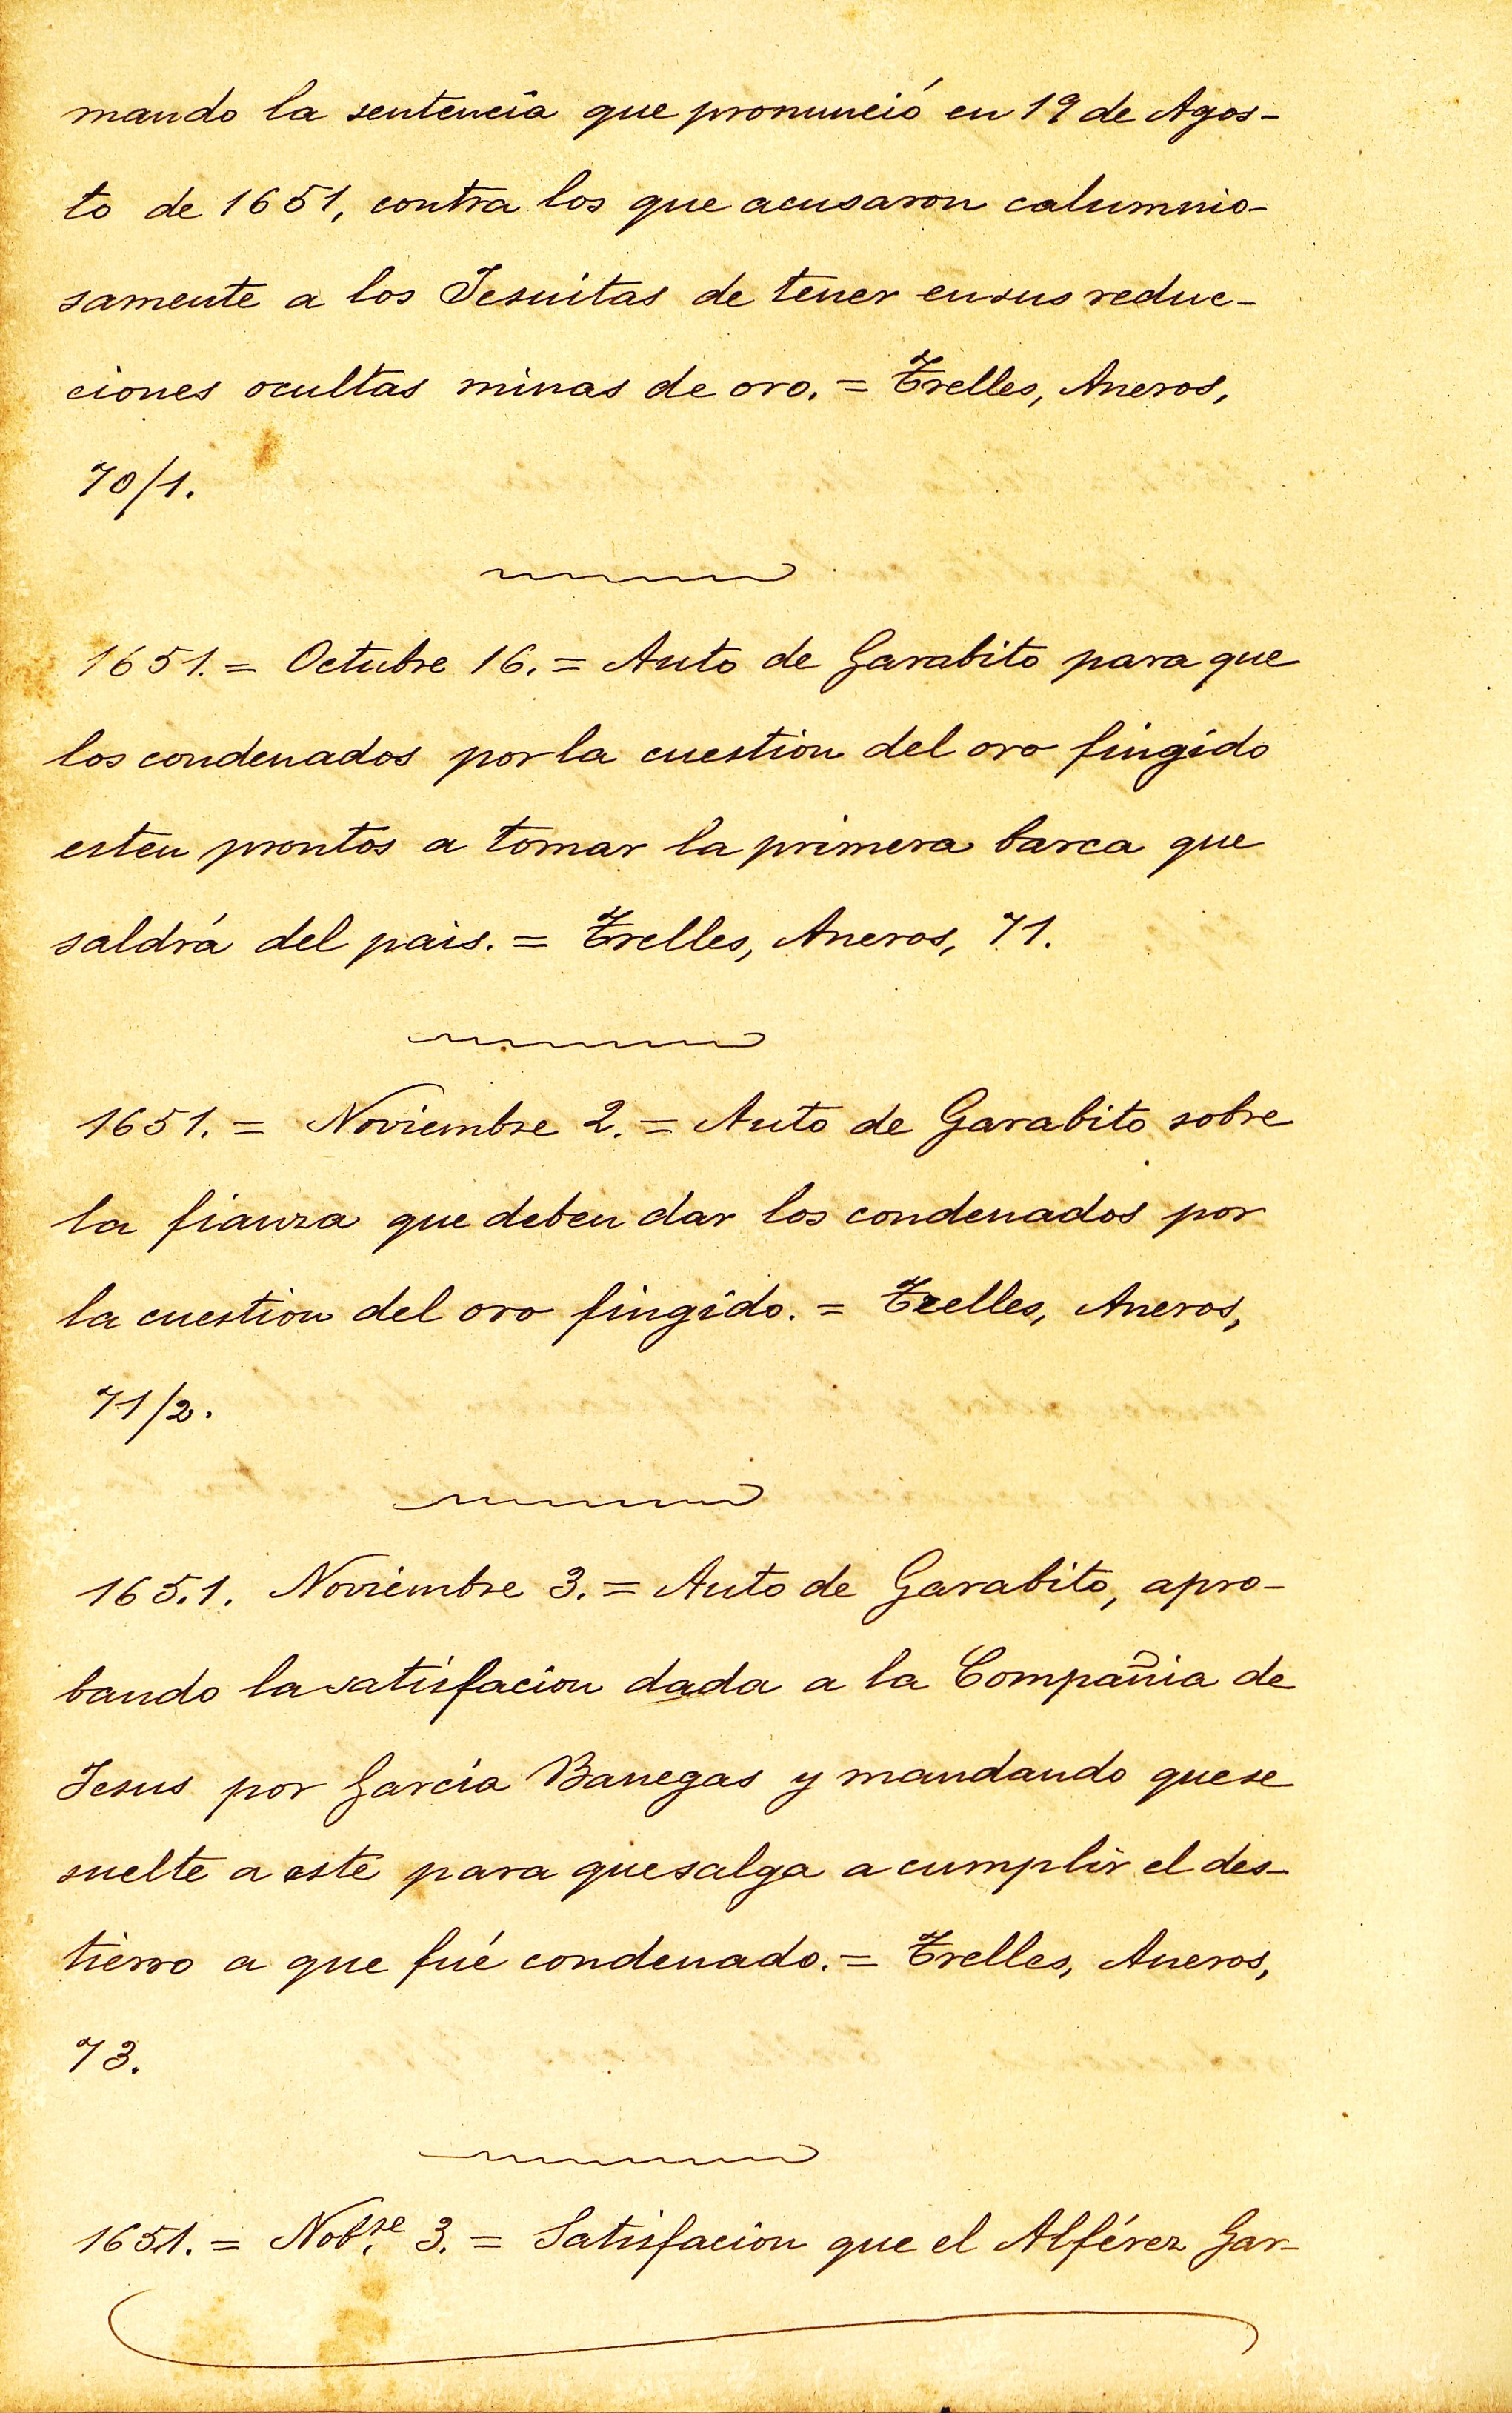 mando la sentencia que pronunció en 19 de Agos-
to de 1651, contra los que acusaron calumnio-
samente a los Jesuitas de tener en sus reduc-
ciones ocultas minas de oro. = Trelles, Aneros,
70/1.
1651. = Octubre 16. = Auto de Garabito para que
los condenados por la cuestion del oro fingido
esten prontos a tomar la primera barca que
saldrá del pais. = Trelles, Aneros, 71.
1651. = Noviembre 2. = Auto de Garabito sobre
la fianza que deben dar los condenados por
la cuestion del oro fingido. = Trelles, Aneros,
71/2.
1651. Noviembre 3. = Auto de Garabito, apro-
bando la satisfacion dada a la Compañia de
Jesus por Garcia Banegas y mandando que se
suelte a este para que salga a cumplir el des-
tierro a que fué condenado. = Trelles, Aneros,
73.
1651. = Nob.re 3. = Satisfacion que el Alférez Gar-